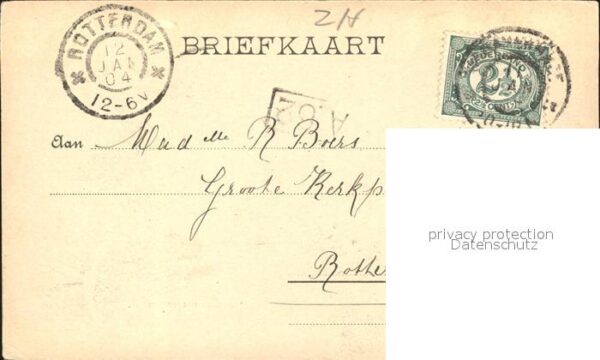 2H
ROTTERDAM
12
JAN
04
12-6V
BRIEFKAART
2½
Aan Mad lle R Boers
Groote Kerkp
Rotte
privacy protection
Datenschutz